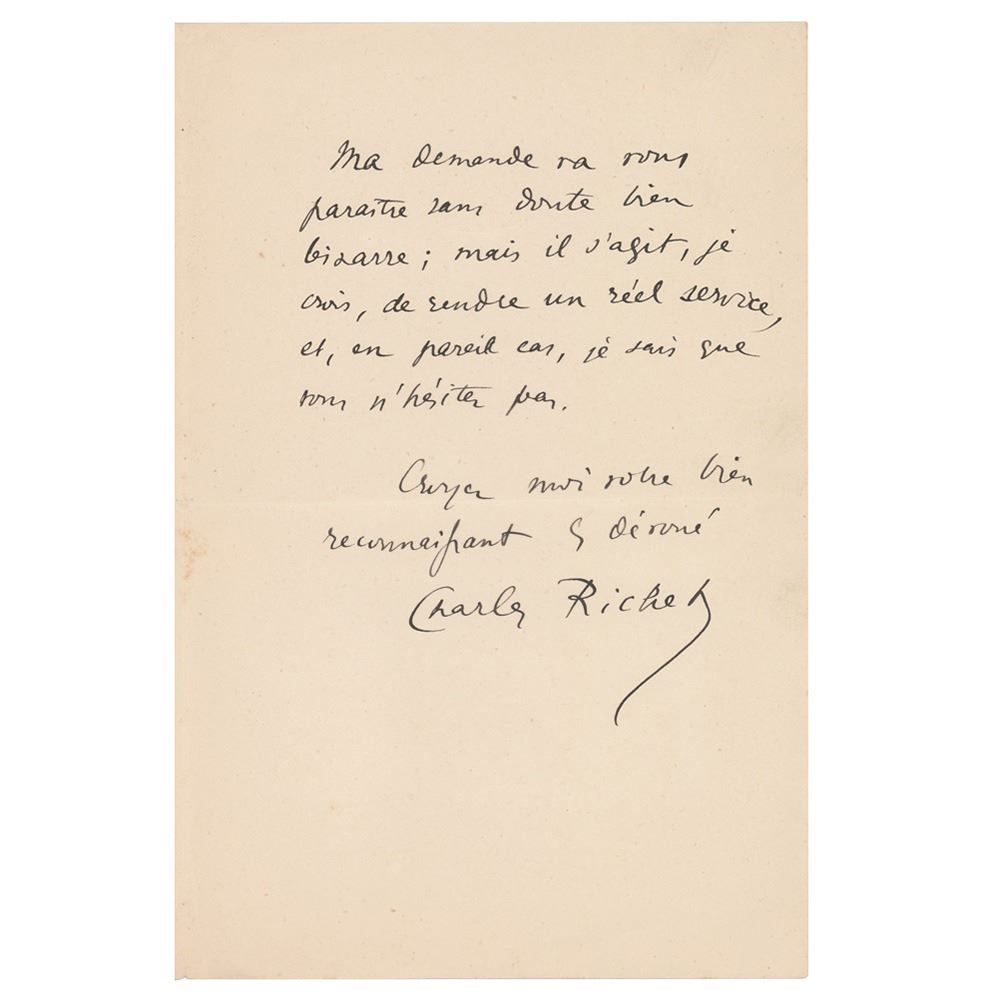 Ma demande va vous
paraître sans doute bien
bizarre ; mais il s'agit, je
crois, de rendre un réel service,
et, en pareil cas, je sais que
vous n'hésitez pas.
Croyez moi votre bien
reconnaissant & dévoué
Charles Richet